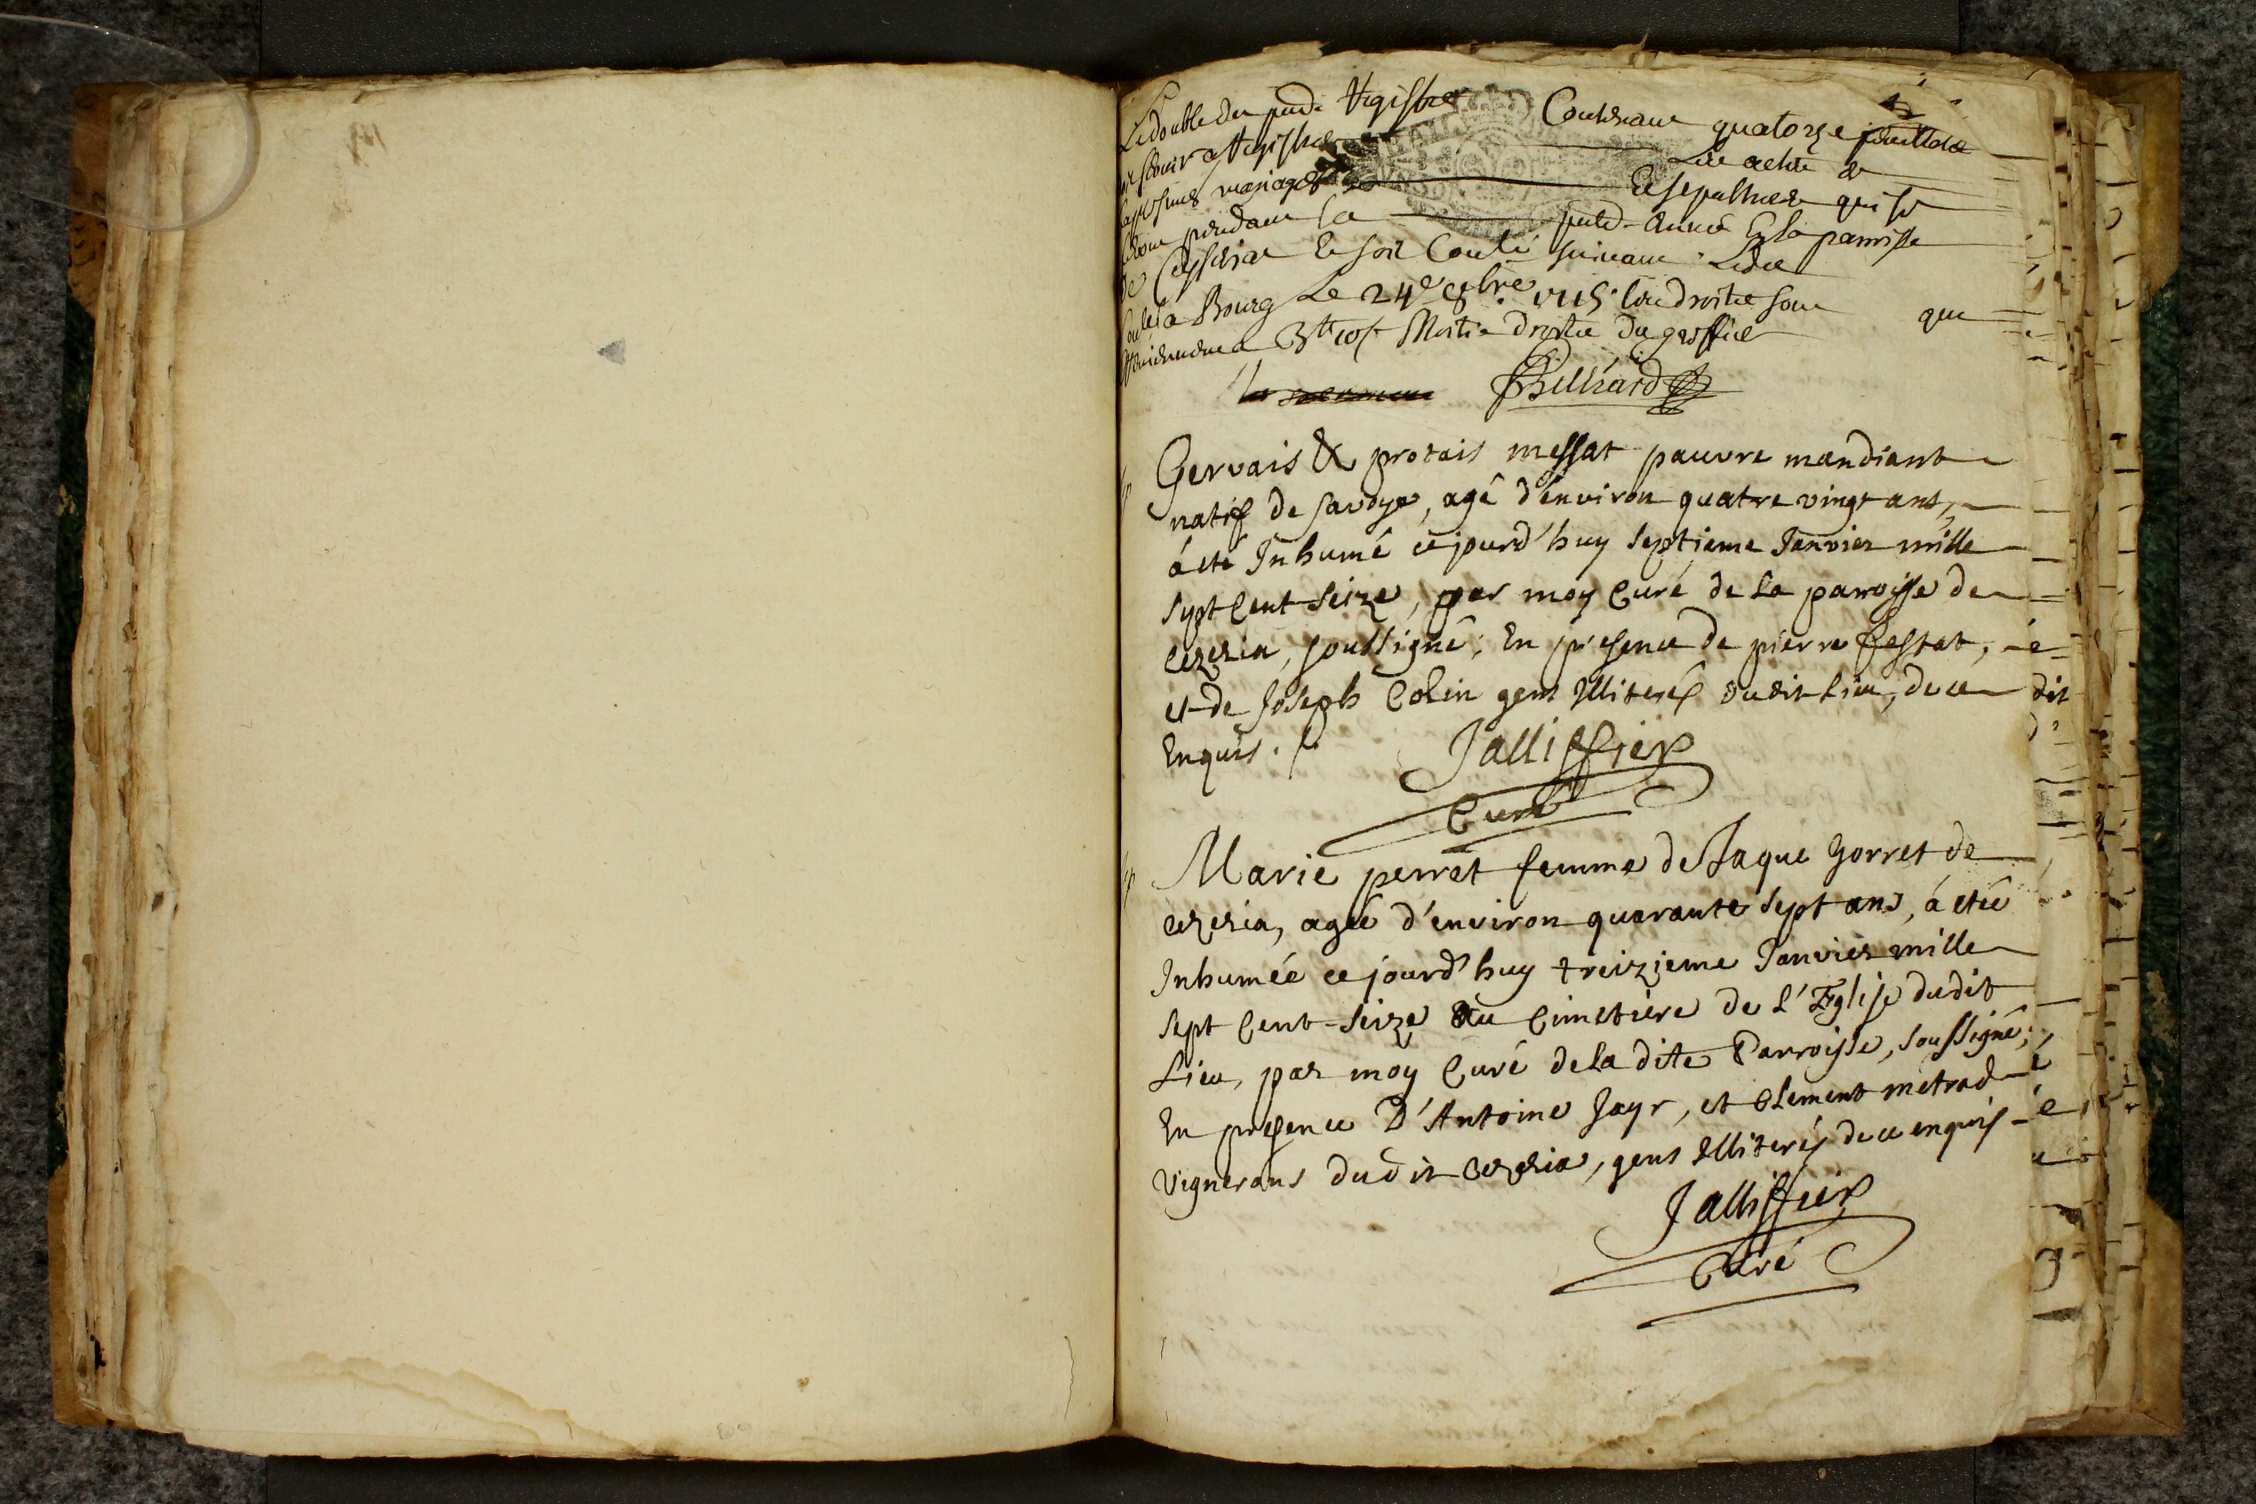 Le double du pnt Registre Contenant quatorze feuillets
a Registrer Les actes de
baptesmes mariages Et sepultures qui se
feront pendant la pnte Année En la parroisse
De Ceyseria Et soit Coullé suivant Ledit
a Bourg Le 24e 8bre 1715. Les droits sont que
3tt 10s Moitié droits du greffier
Billiard
Gervais & protais messat pauvre mandiant
natif de savoye, agé d'environ quatre vingt ans,
á eté Inhumé cejourd'huy septieme Janvier mille
sept Cent Seize, par moy Curé de La parroisse de
cezeria, soussigné; En presence de pierre festat,
et de Joseph Colin gens Illiterés dudit Lieu, de ce
Enquis.
Jalliffier
Curé
Marie perret femme de Jaque Gorret de
cezeria, ageé d'environ quarante sept ans, á eteé
Inhumée cejourd'huy treizieme Janvier mille
sept Cent-Seize Au Cimetiere de l'Eglise dudit
Lieu, par moy Curé de la dite Parroisse, soussigné;
En presence D'Antoine Jayr, et Clement metrad
vignerons dudit cezeria, gens Illiterés de ce enquis
Jalliffier
Curé